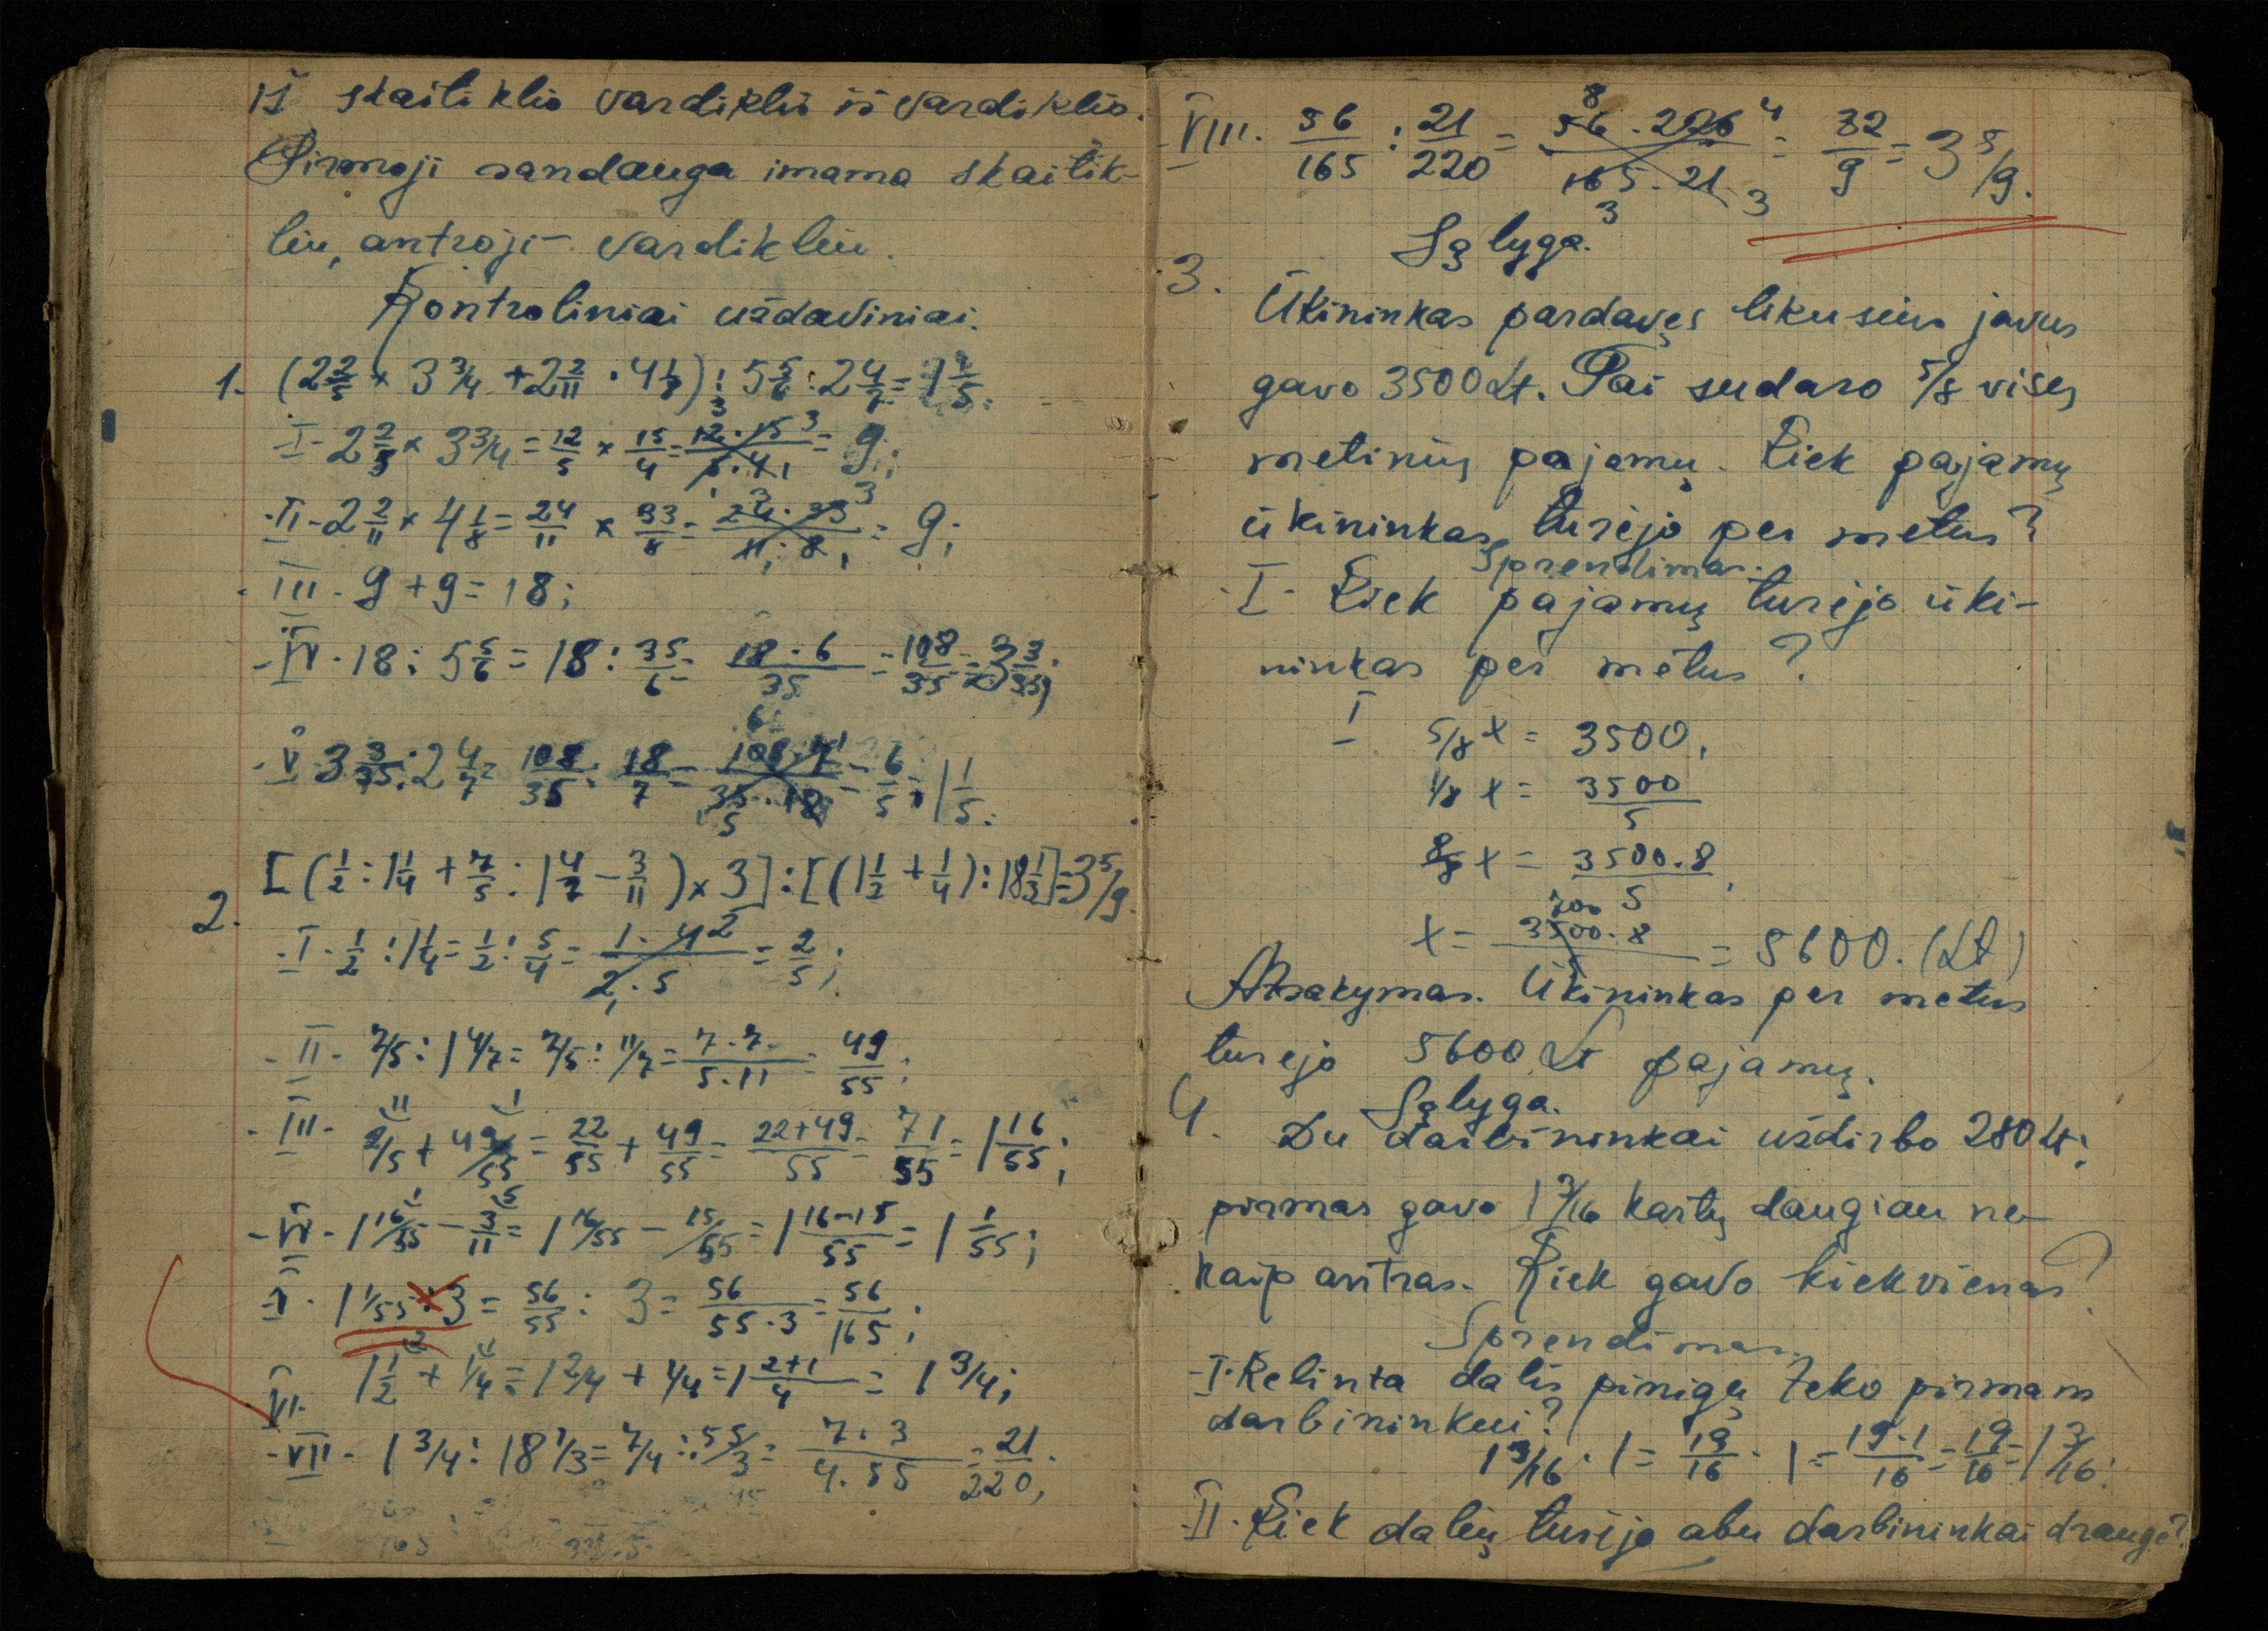 iš skaitiklio vardiklis iš vardiklio.
Pirmoji sandauga imama skaitik-
liu, antroji – vardikliu.
Kontroliniai uždaviniai.
1. (2 2/5 × 3 3/4 + 2 2/11 · 4 1/8) : 5 5/6 : 2 4/7 = 1 1/5.
-I- 2 2/5 × 3 3/4 = 12/5 × 15/4 = 12·15/5·4 = 9;
-II- 2 2/11 × 4 1/8 = 24/11 × 33/8 = 24·33/11·8 = 9;
-III- 9 + 9 = 18;
-IV- 18 : 5 5/6 = 18 : 35/6 = 18·6/35 = 108/35 = 3 3/35;
-V- 3 3/35 : 2 4/7 = 108/35 : 18/7 = 108·7/35·18 = 6/5 = 1 1/5.
2. [(1/2 : 1 1/4 + 7/5 : 1 4/7 − 3/11) × 3] : [(1 1/2 + 1/4) : 18 1/3] = 3 5/9.
-I- 1/2 : 1 1/4 = 1/2 : 5/4 = 1·4/2·5 = 2/5;
-II- 7/5 : 1 4/7 = 7/5 : 11/7 = 7·7/5·11 = 49/55;
-III- 2/5 + 49/55 = 22/55 + 49/55 = 22+49/55 = 71/55 = 1 16/55;
-IV- 1 16/55 − 3/11 = 1 16/55 − 15/55 = 1 16−15/55 = 1 1/55;
-V- 1 1/55 : 3 = 56/55 : 3 = 56/55·3 = 56/165;
VI. 1 1/2 + 1/4 = 1 2/4 + 1/4 = 1 2+1/4 = 1 3/4;
-VII- 1 3/4 : 18 1/3 = 7/4 : 55/3 = 7·3/4·55 = 21/220;
VIII. 56/165 : 21/220 = 56·220/165·21 = 32/9 = 3 5/9.
Sąlyga.
3. Ūkininkas pardavęs likusius javus
gavo 3500 Lt. Tai sudaro 5/8 visų
metinių pajamų. Kiek pajamų
ūkininkas turėjo per metus?
Sprendimas.
-I- Kiek pajamų turėjo ūki-
ninkas per metus?
I 5/8 x = 3500,
1/8 x = 3500/5
8/8 x = 3500·8/5,
x = 3500·8/5 = 5600. (Lt)
Atsakymas. Ūkininkas per metus
turejo 5600 Lt pajamų.
Sąlyga.
4. Du darbininkai uždirbo 280 Lt;
pirmas gavo 1 3/16 kartų daugiau ne-
kaip antras. Kiek gavo kiekvienas?
Sprendimas.
-I- Kelinta dalis pinigų teko pirmam
darbininkui?
1 3/16 · 1 = 19/16 · 1 = 19·1/16 = 19/16 = 1 3/16;
II. Kiek dalių turėjo abu darbininkai drauge?